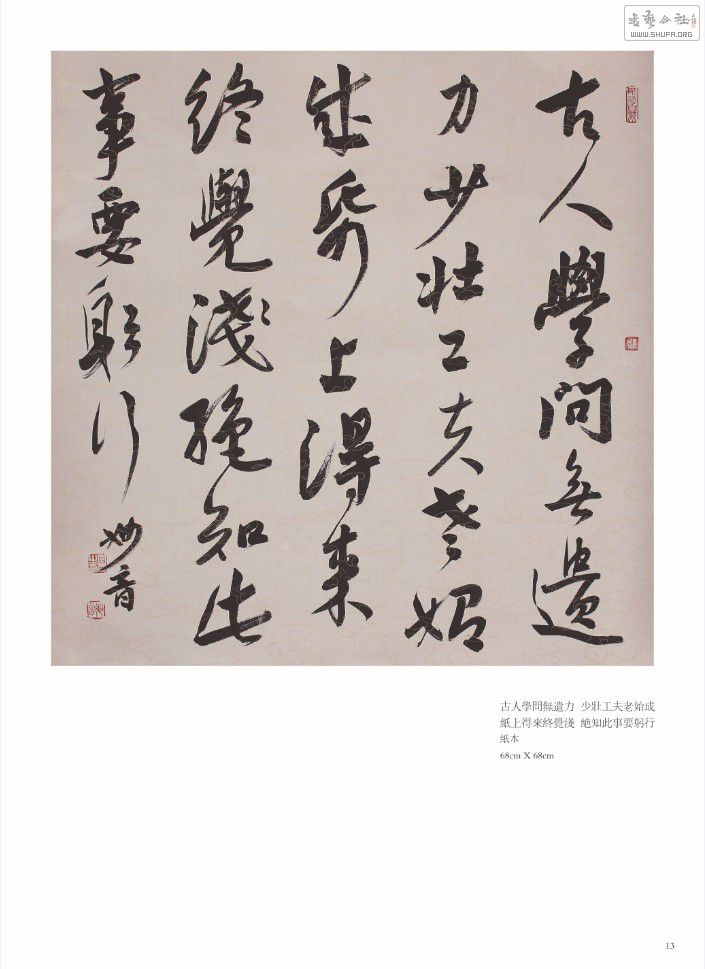 書藝公社
WWW.SHUFA.ORG
古人學問無遺
力少壯工夫老始
成紙上得来
終覺淺絕知此
事要躬行
妙音
古人學問無遺力 少壯工夫老始成
紙上得來終覺淺 絶知此事要躬行
紙本
68cm X 68cm
13